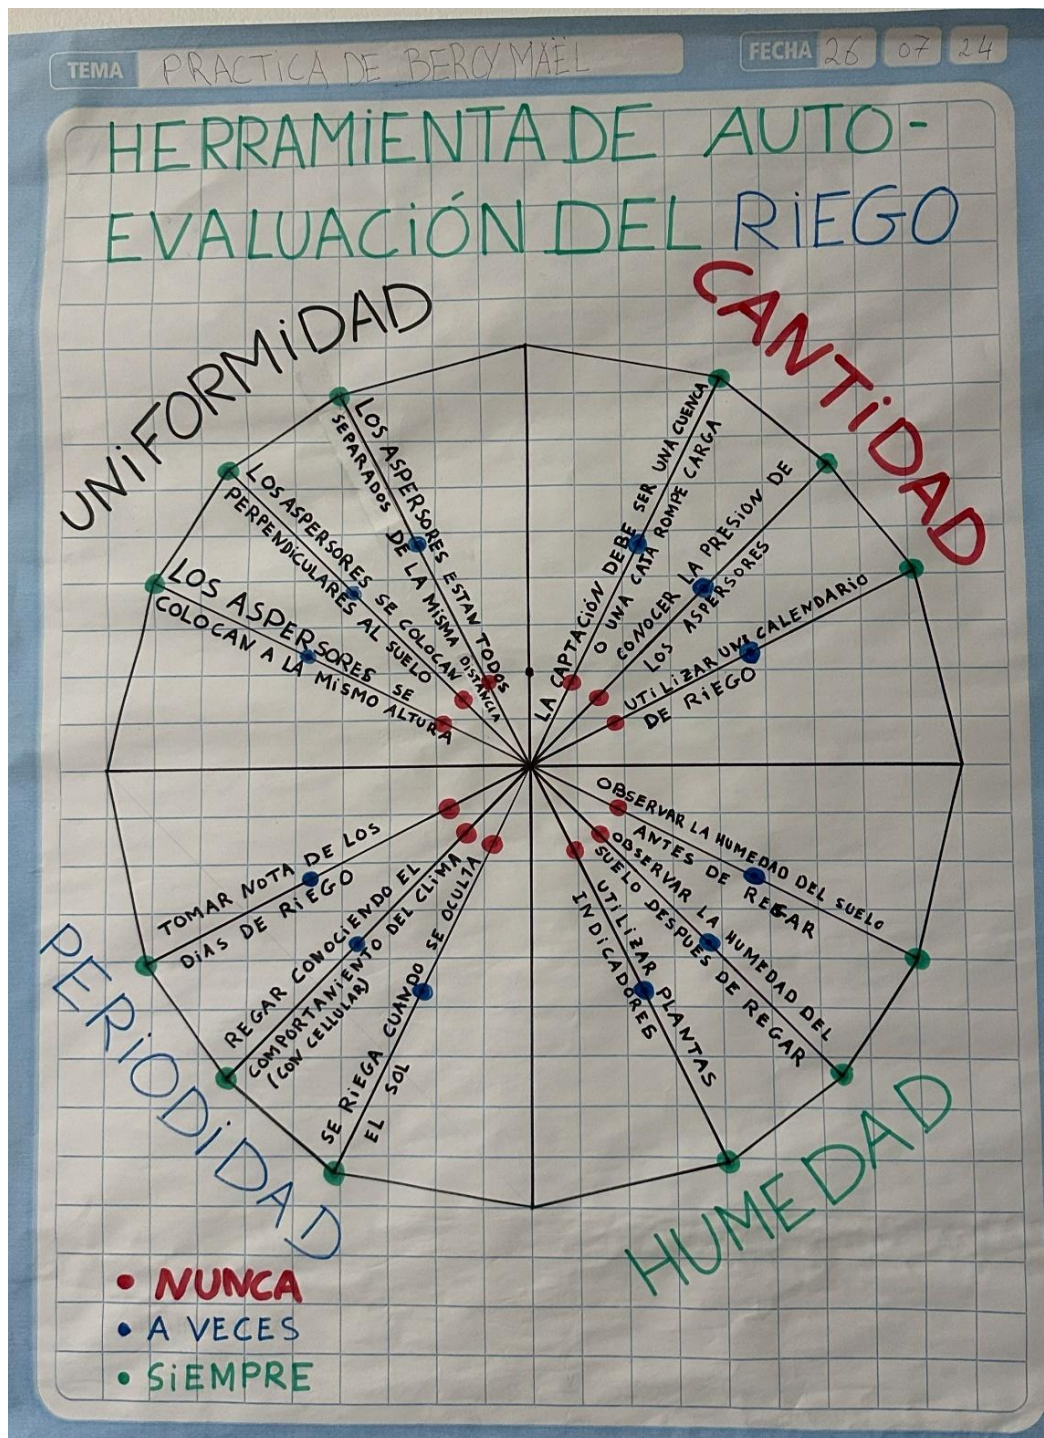 TEMA PRACTICA DE BERCY MAËL
FECHA 26 07 24
HERRAMiENTA DE AUTO-
EVALUACiÓN DEL RiEGO
UNiFORMiDAD
LOS ASPERSORES ESTAN TODOS
SEPARADOS DE LA MISMA DISTANCIA
LOS ASPERSORES SE COLOCAN
PERPENDICULARES AL SUELO
LOS ASPERSORES SE
COLOCAN A LA MiSMO ALTURA
CANTiDAD
LA CAPTACiÓN DEBE SER UNA CUENCA
O UNA CAJA ROMPE CARGA
CONOCER LA PRESiON DE
LOS ASPERSORES
UTiLiZAR UN CALENDARiO
DE RiEGO
PERiODiDAD
TOMAR NOTA DE LOS
DiAS DE RiEGO
REGAR CONOCiENDO EL
COMPORTAMiENTO DEL CLiMA
(CON CELLULAR)
SE RiEGA CUANDO SE OCULTA
EL SOL
HUMEDAD
OBSERVAR LA HUMEDAD DEL SUELO
ANTES DE REGAR
OBSERVAR LA HUMEDAD DEL
SUELO DESPUES DE REGAR
UTiLiZAR PLANTAS
INDiCADORES
• NUNCA
• A VECES
• SiEMPRE